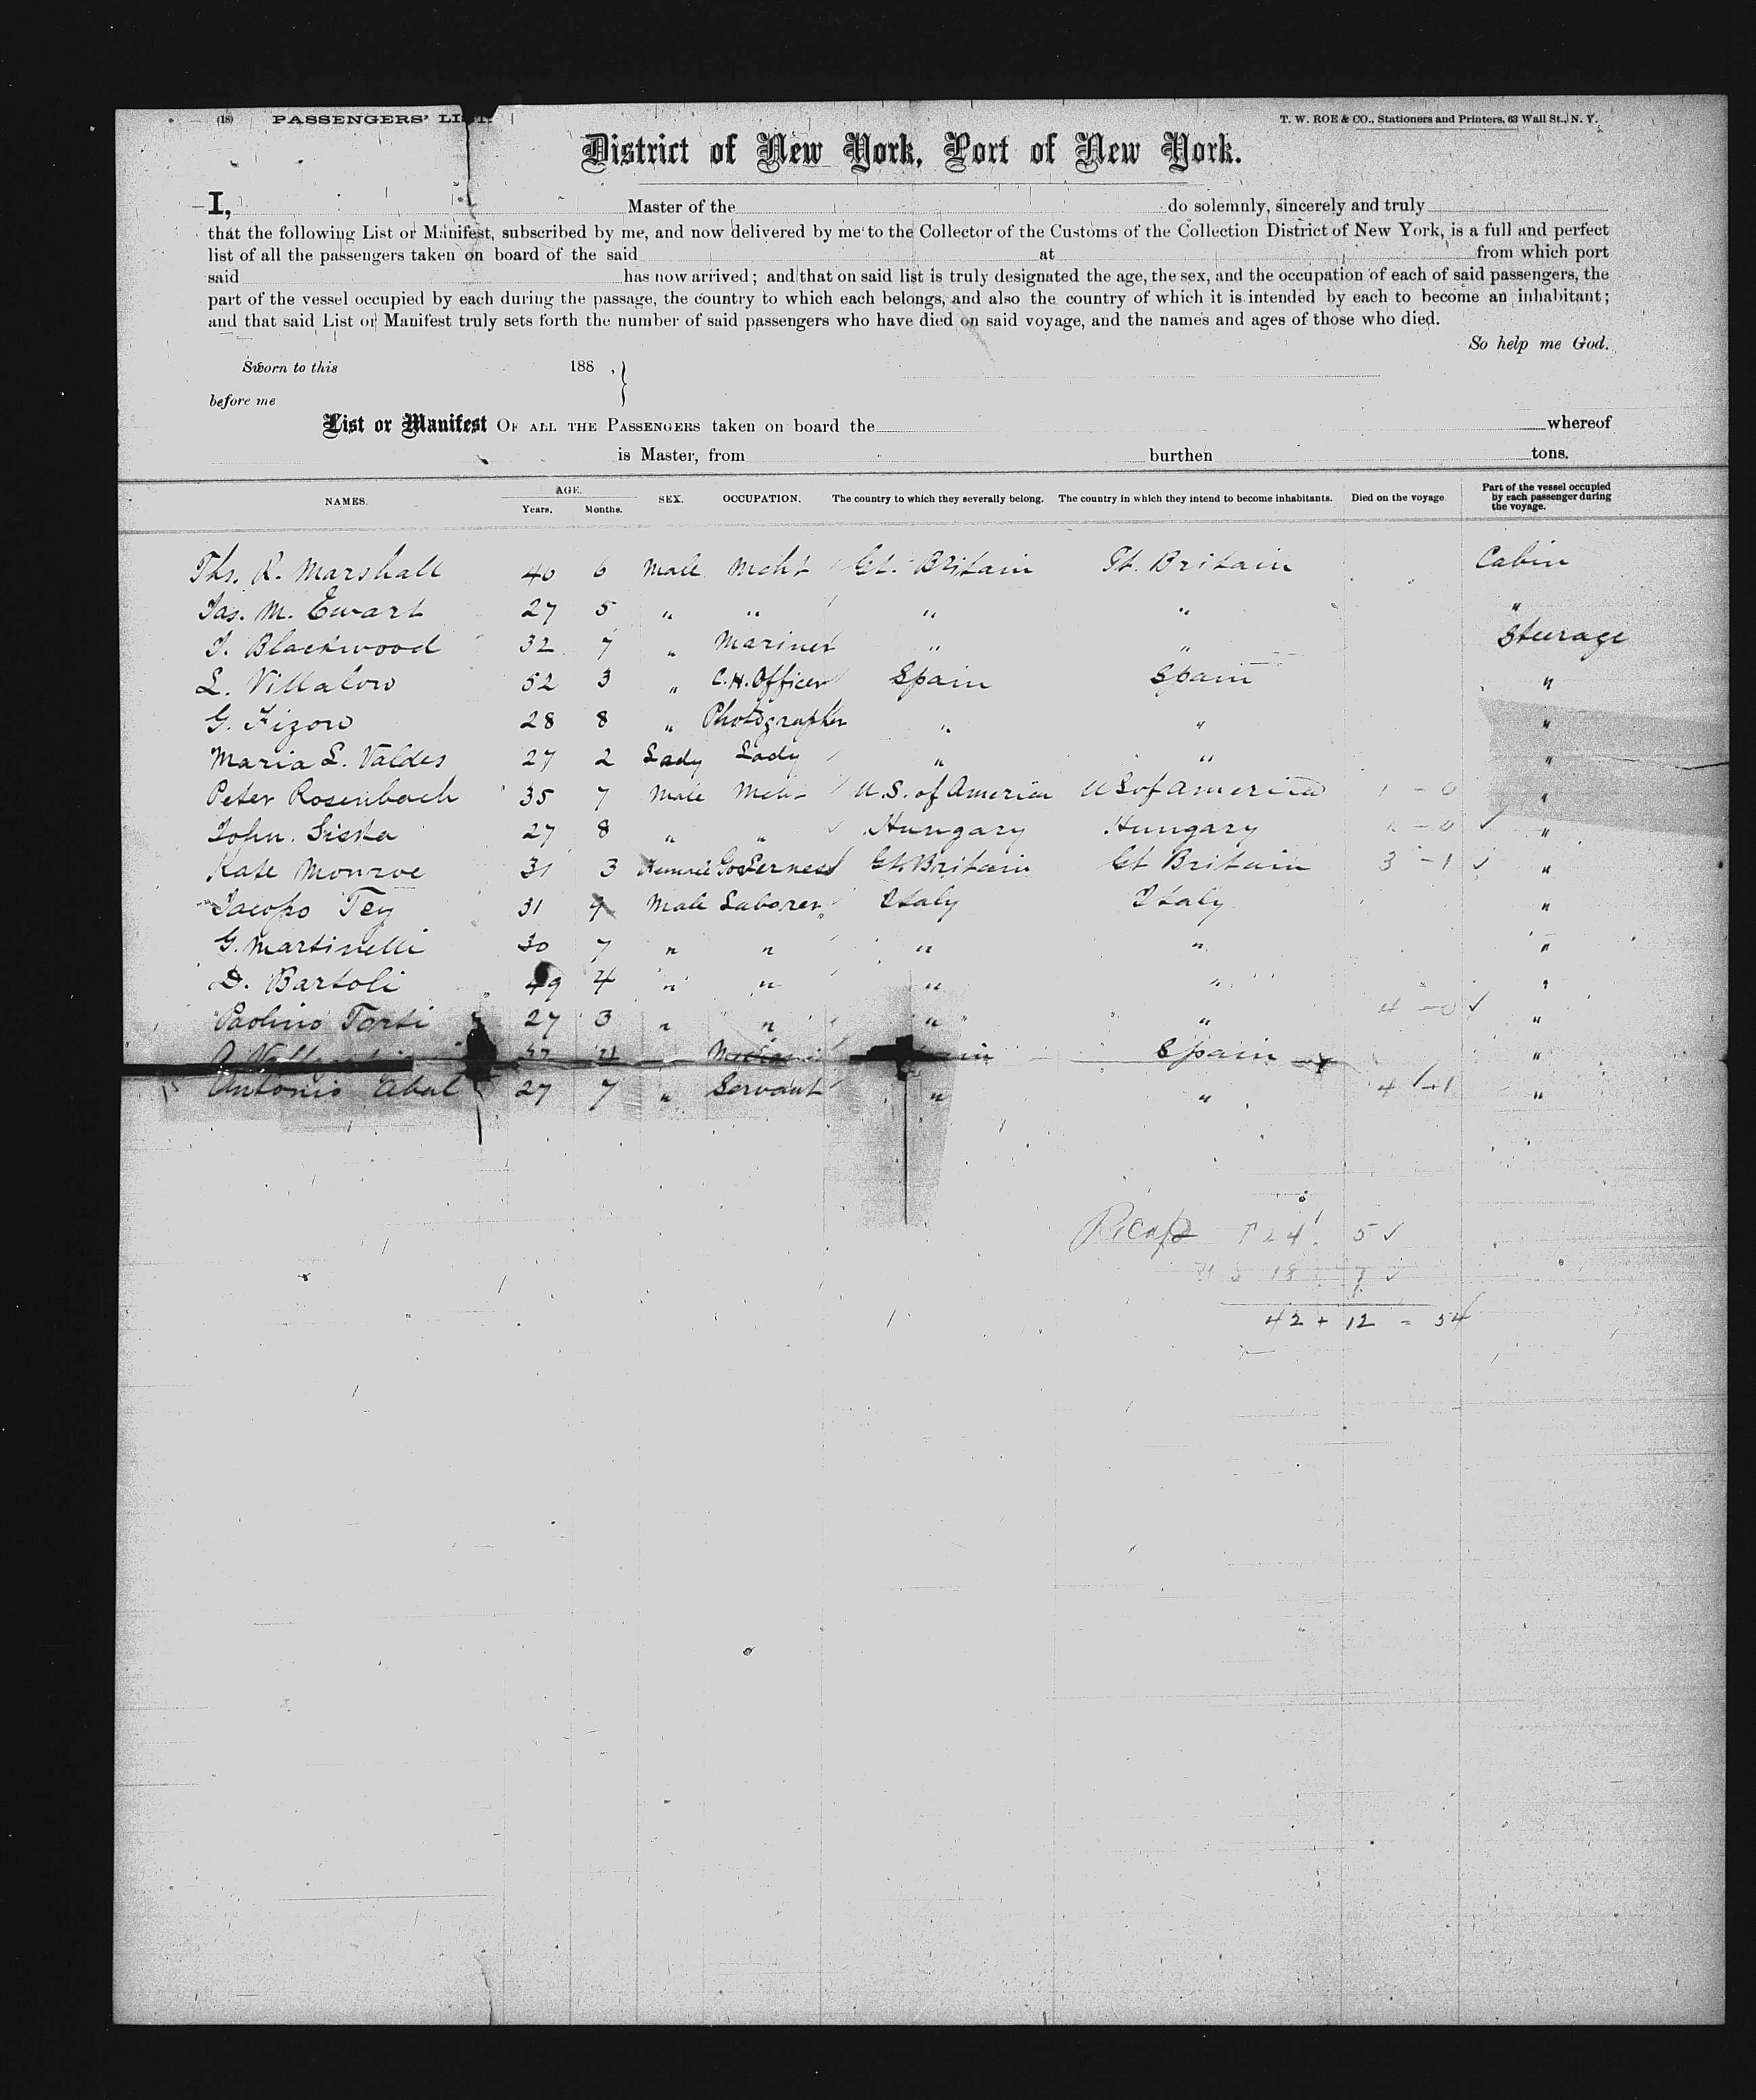 (18) PASSENGERS' LIST. T. W. ROE & CO., Stationers and Printers, 63 Wall St., N. Y.
District of New York, Port of New York.
I, Master of the do solemnly, sincerely and truly
that the following List or Manifest, subscribed by me, and now delivered by me to the Collector of the Customs of the Collection District of New York, is a full and perfect
list of all the passengers taken on board of the said at from which port
said has now arrived; and that on said list is truly designated the age, the sex, and the occupation of each of said passengers, the
part of the vessel occupied by each during the passage, the country to which each belongs, and also the country of which it is intended by each to become an inhabitant;
and that said List or Manifest truly sets forth the number of said passengers who have died on said voyage, and the names and ages of those who died.
So help me God.
Sworn to this 188 .
before me
List or Manifest OF ALL THE PASSENGERS taken on board the whereof
is Master, from burthen tons.
NAMES. AGE. Years. Months. SEX. OCCUPATION. The country to which they severally belong. The country in which they intend to become inhabitants. Died on the voyage. Part of the vessel occupied by each passenger during the voyage.
Ths. R. Marshall 40 6 Male Mcht Gt. Britain Gt. Britain Cabin
Jas. M. Ewart 27 5 " " " " "
J. Blackwood 32 7 " Mariner " " Steerage
L. Villalow 52 3 " C.H. Officer Spain Spain "
G. Fizow 28 8 " Photographer " " "
Maria L. Valdes 27 2 Lady Lady " " "
Peter Rosenbach 35 7 Male Mcht U.S. of America US of America 1 - 0 "
John. Siska 27 8 " " Hungary Hungary "
Kate Monroe 31 3 Female Governess Gt. Britain Gt Britain 3 - 1 ✓ "
Jacopo Tey 31 9 Male Laborer Italy Italy "
G. Martinelli 30 7 " " " " "
D. Bartoli 49 4 " " " " "
Paolino Torti 27 3 " " " " 4 - 0 ✓ "
Spain "
Antonio Abal 27 7 " Servant " " 4 + 1 "
Recap 24 5 ✓
U S 18 7 ✓
42 + 12 = 54